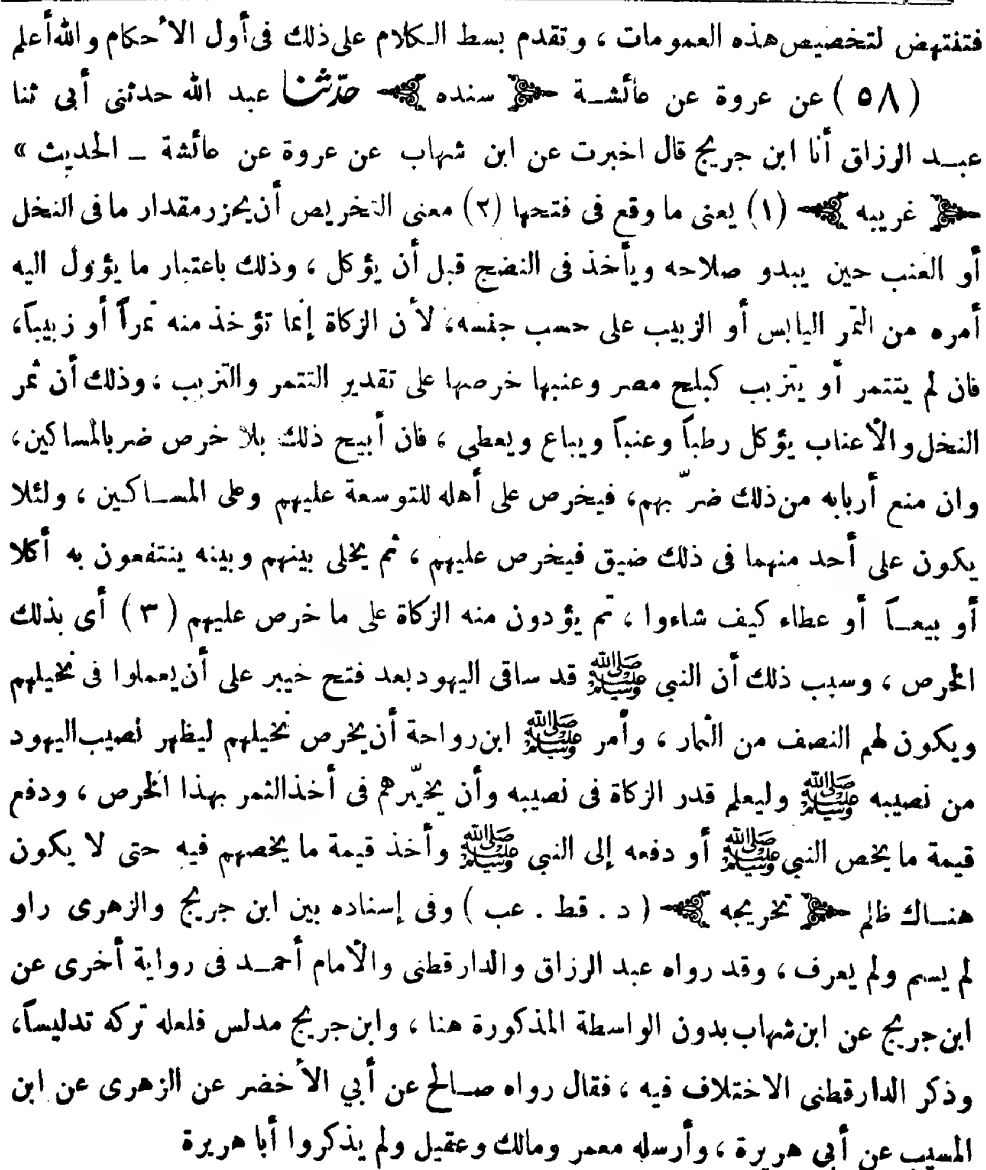 فتنتهض لتخصيص هذه العمومات ، وتقدم بسط الكلام على ذلك فى أول الأحكام والله أعلم
( ٥٨ ) عن عروة عن عائشة ﴿ سنده ﴾ حدّثنا عبد الله حدثنى أبى ثنا
عبد الرزاق أنا ابن جريج قال اخبرت عن ابن شهاب عن عروة عن عائشة ــ الحديث »
﴿ غريبه ﴾ (١) يعنى ما وقع فى فتحها (٢) معنى التخريص أن يحزر مقدار ما فى النخل
أو العنب حين يبدو صلاحه ويأخذ فى النضج قبل أن يؤكل ، وذلك باعتبار ما يؤول اليه
أمره من التمر اليابس أو الزبيب على حسب جنسه، لأن الزكاة إنما تؤخذ منه تمراً أو زبيباً،
فان لم يتتمر أو يتزبب كبلح مصر وعنبها خرصها على تقدير التتمر والتزبب ، وذلك أن ثمر
النخل والأعناب يؤكل رطباً وعنباً ويباع ويعطى ، فان أبيح ذلك بلا خرص ضر بالمساكين،
وان منع أربابه من ذلك ضرّ بهم، فيخرص على أهله للتوسعة عليهم وعلى المساكين ، ولئلا
يكون على أحد منهما فى ذلك ضيق فيخرص عليهم ، ثم يخلى بينهم وبينه ينتفعون به أكلا
أو بيعاً أو عطاء كيف شاءوا ، ثم يؤدون منه الزكاة على ما خرص عليهم ( ٣ ) أى بذلك
الخرص ، وسبب ذلك أن النبى ﷺ قد ساقى اليهود بعد فتح خيبر على أن يعملوا فى نخيلهم
ويكون لهم النصف من الثمار ، وأمر ﷺ ابن رواحة أن يخرص نخيلهم ليظهر نصيب اليهود
من نصيبه ﷺ وليعلم قدر الزكاة فى نصيبه وأن يخيّرهم فى أخذ الثمر بهذا الخرص ، ودفع
قيمة ما يخص النبى ﷺ أو دفعه إلى النبى ﷺ وأخذ قيمة ما يخصهم فيه حتى لا يكون
هناك ظلم ﴿ تخريجه ﴾ ( د . قط . عب ) وفى إسناده بين ابن جريج والزهرى راو
لم يسم ولم يعرف ، وقد رواه عبد الرزاق والدارقطنى والأمام أحمد فى رواية أخرى عن
ابن جريج عن ابن شهاب بدون الواسطة المذكورة هنا ، وابن جريج مدلس فلعله تركه تدليساً،
وذكر الدارقطنى الاختلاف فيه ، فقال رواه صالح عن أبي الأخضر عن الزهرى عن ابن
المسيب عن أبى هريرة ، وأرسله معمر ومالك وعقيل ولم يذكروا أبا هريرة